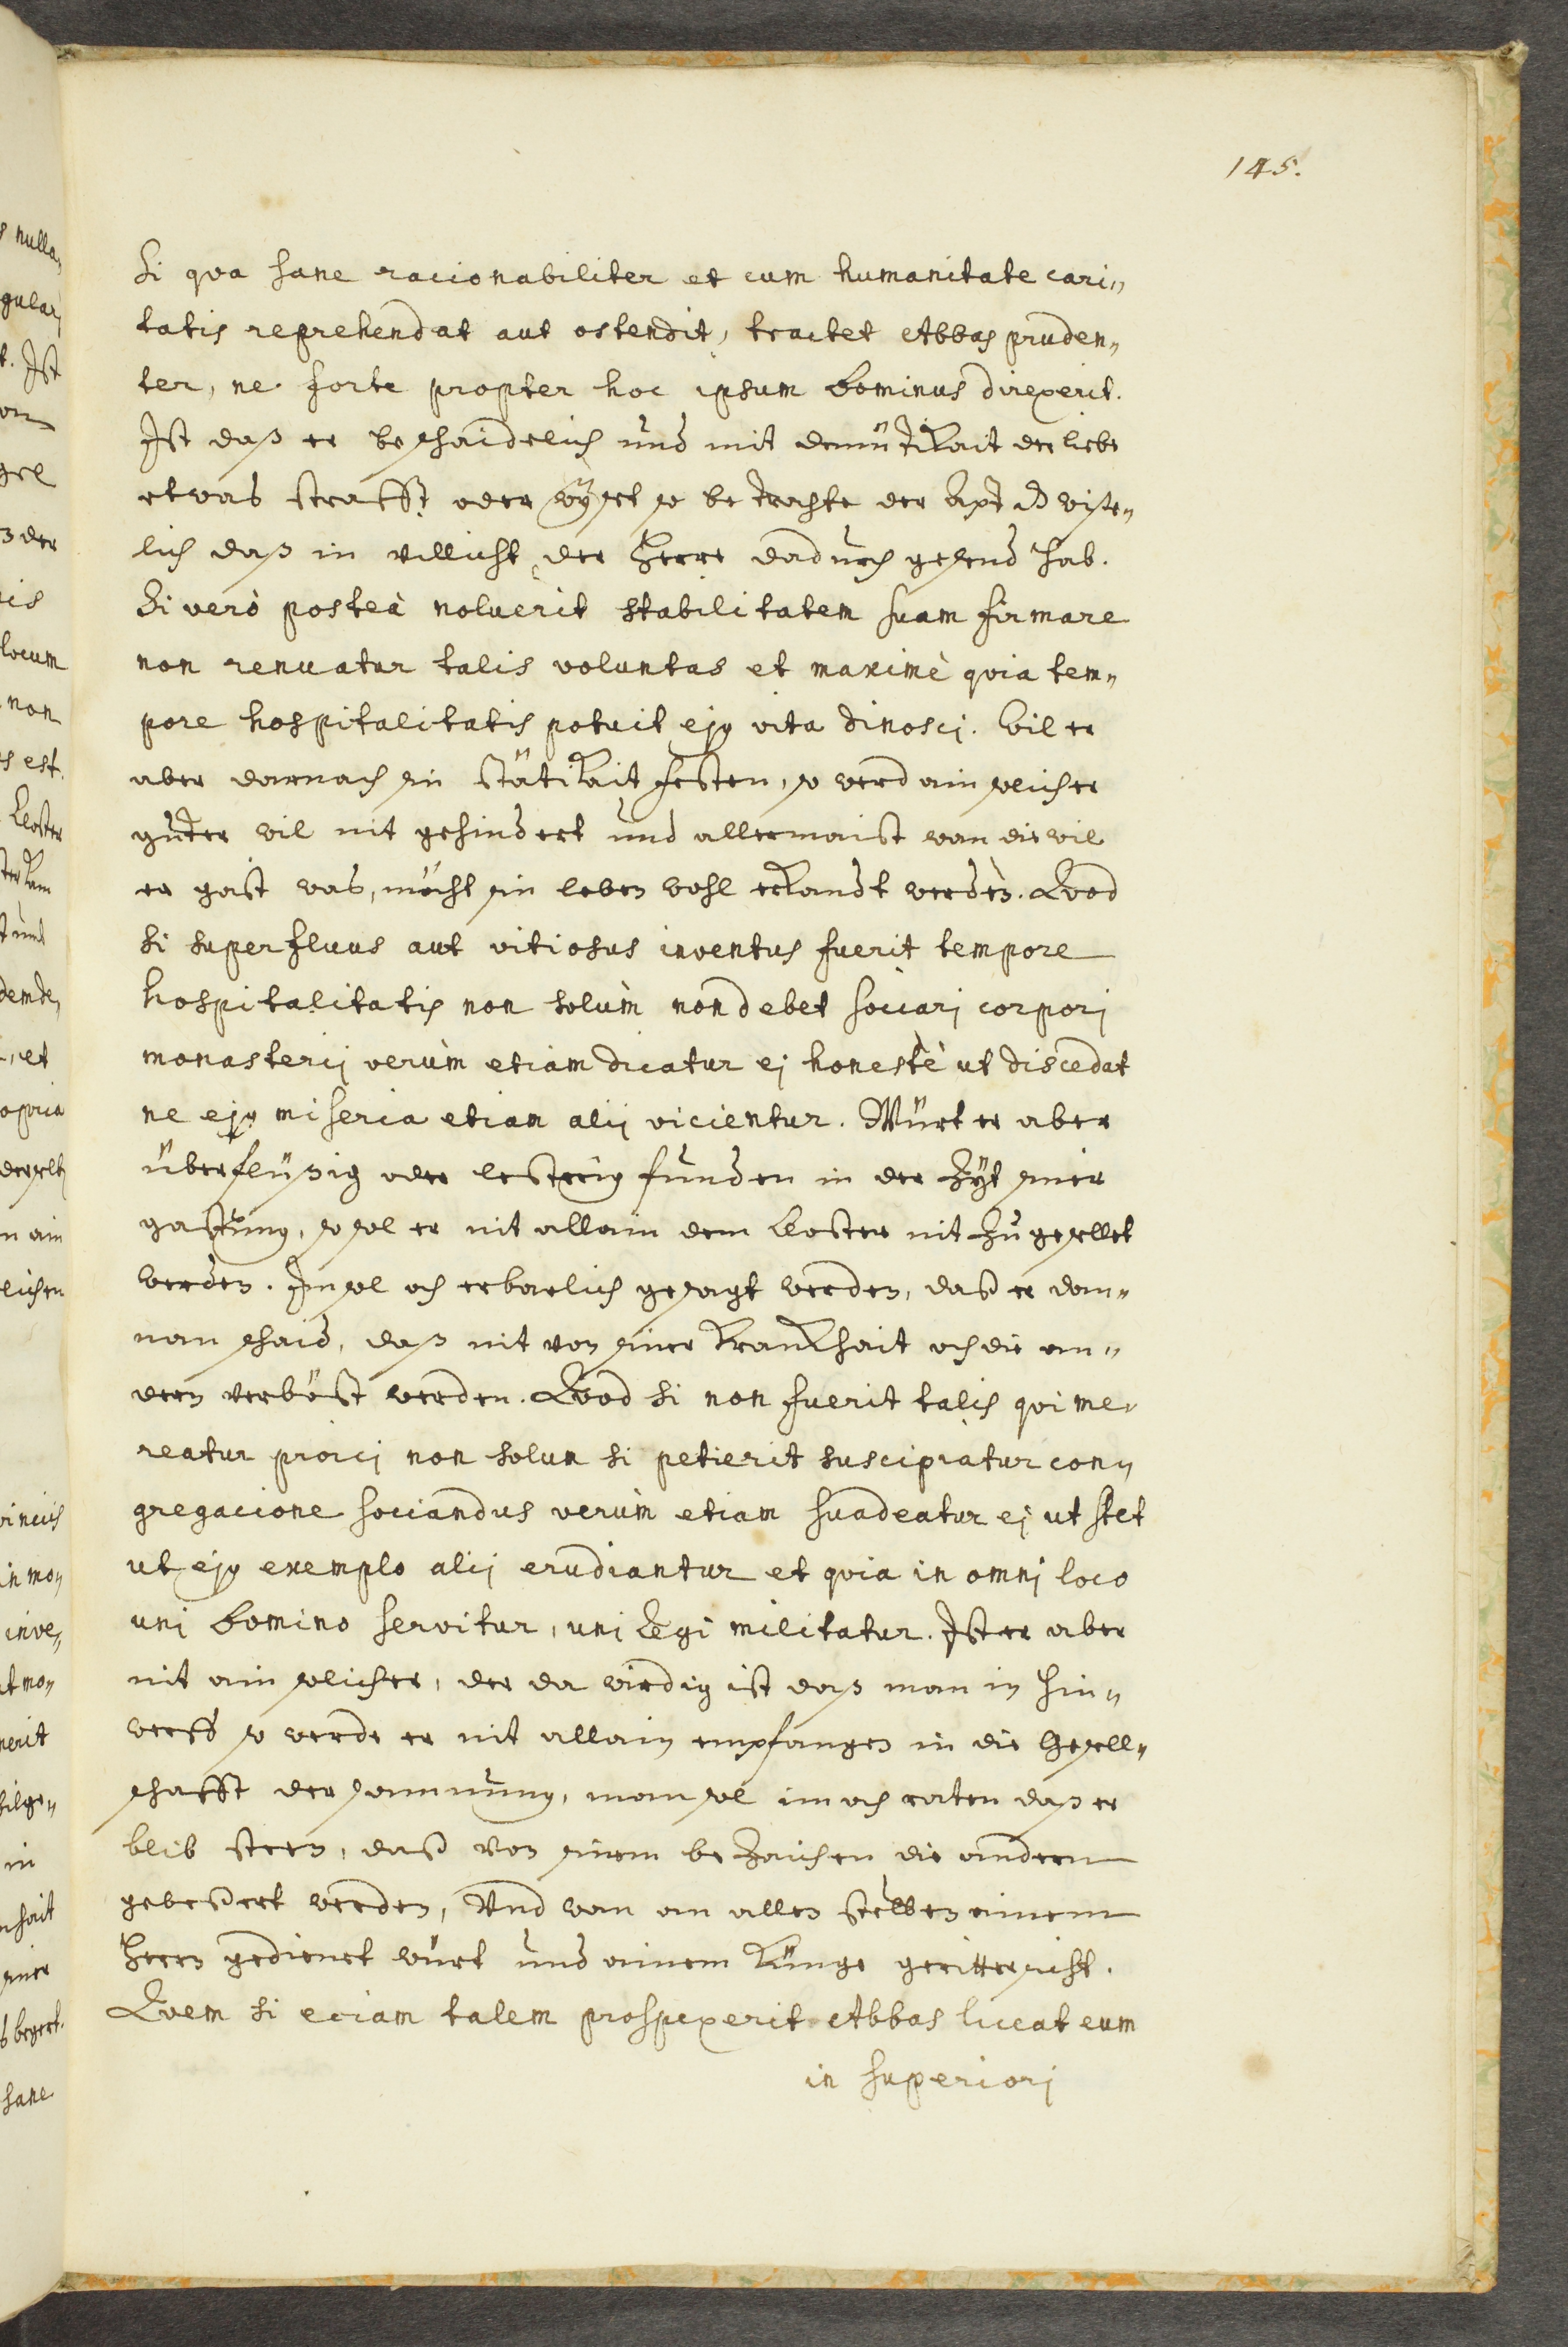 145.
Si qva sane racionabiliter et cum humanitate cari„
tatis reprehendat aut ostendit, tractet Abbas pruden„
ter, ne forte propter hoc ipsum Dominus direxerit.
Ist daß er beschaidelich und mit demütikait der liebe
etwas strafft oder wyset so betrachte der Apt wise„
lich daß in villicht der Herre dadurch gesend hab.
Si verò posteà noluerit stabilitatem suam firmare
non renuatur talis voluntas et maximè qvia tem„
pore hospitalitatis potuit ejꝰ vita dinosci. Wil er
aber darnach sin stätikait festen, so werd ain solicher
guter wil nit gehindert und allermaist wan die wil
er gast was, möcht sin leben wohl erkandt werden. Qvod
si superfluus aut vitiosus inventus fuerit tempore
hospitalitatis non solùm non debet sociari corpori
monasterij verùm etiam dicatur ej honestè ut discedat
ne ejꝰ miseria etiam alij vicientur. Würt er aber
überflüßig oder lesterig funden in der Zyt siner
gastung, so sol er nit allain dem Closter nit zugesellet
werden. Im sol och erbarlich gesagt werden, daß er dan„
nan schaid, daß nit von siner krankhait och die an„
dern verböst werden. Qvod si non fuerit talis qvi me„
reatur proici non solum si petierit suscipiatur con„
gregacione sociandus verùm etiam suadeatur ej ut stet
ut ejꝰ exemplo alij erudiantur et qvia in omnj loco
unj Domino servitur, unj Regi militatur. Ist er aber
nit ain solicher, der da wirdig ist daß man in hin„
werff so werde er nit allain empfangen in die Gesell„
schafft der samnung, man sol im och raten daß er
blib steen, daß von sinem bezaichen die andern
gebessert werden, Und wan an allen stetten ainem
Herrn gedienet würt und ainem Künge geritterscht.
Qvem si eciam talem prospexerit Abbas liceat eum
in superiorj